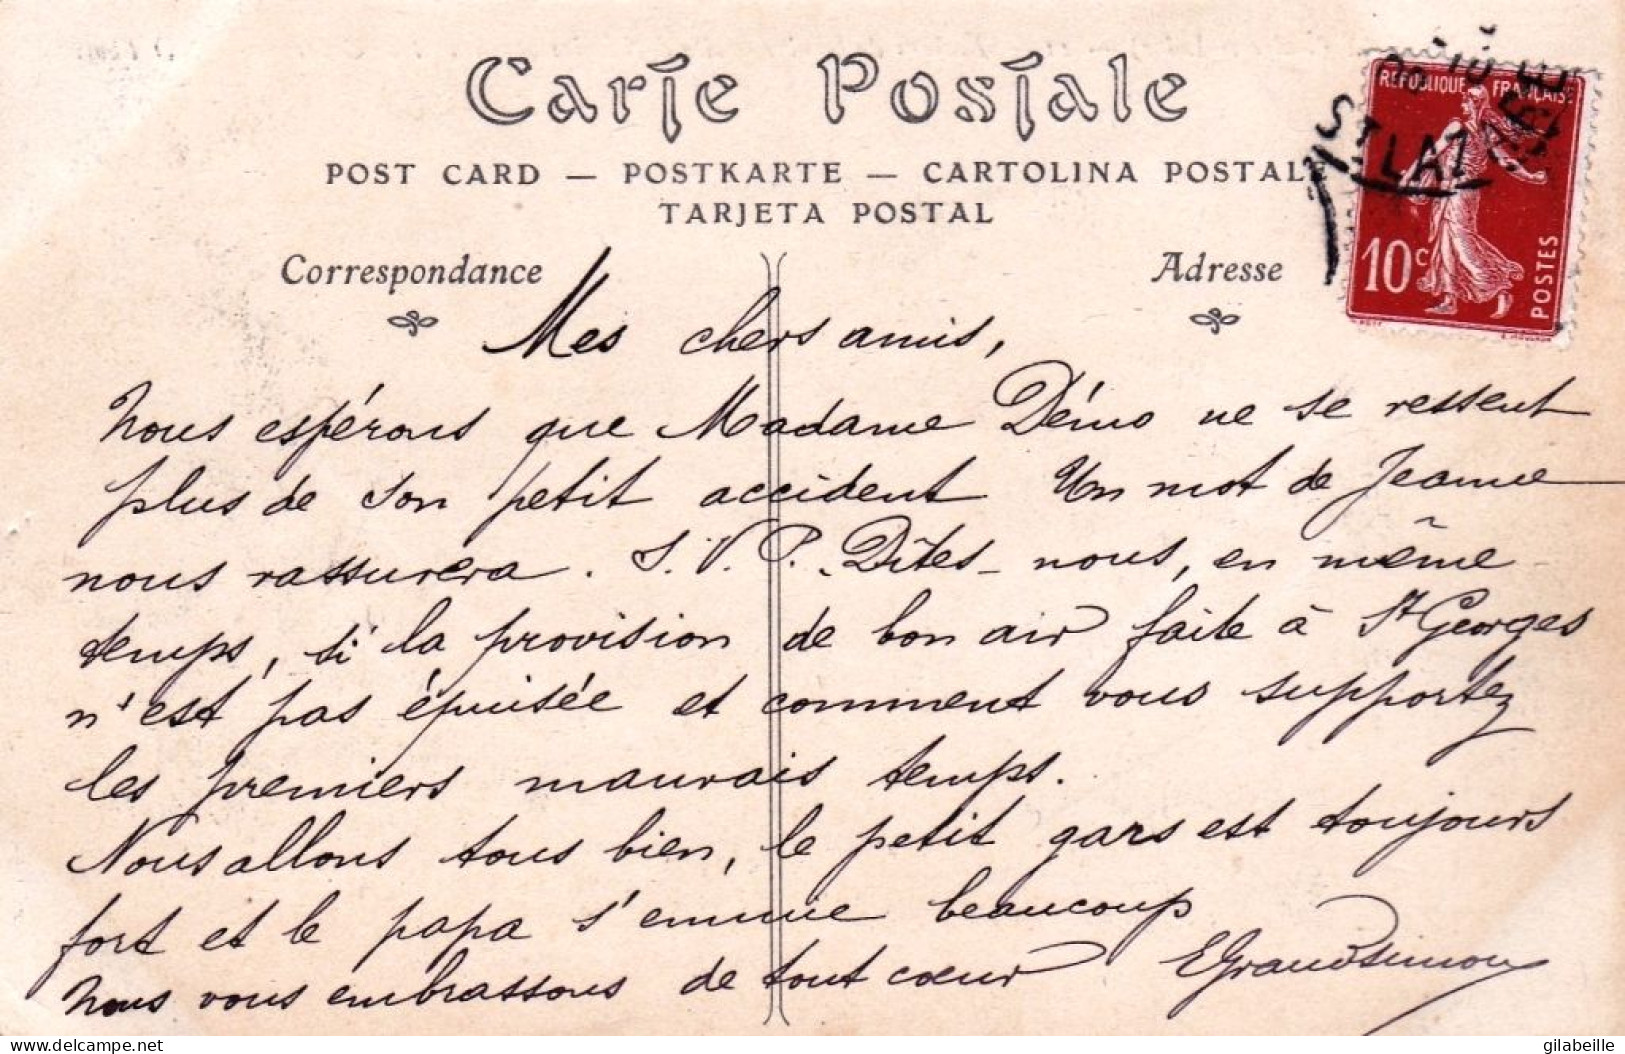 Carte Postale
POST CARD — POSTKARTE — CARTOLINA POSTALE
TARJETA POSTAL
Correspondance
Adresse
RÉPUBLIQUE FRANÇAISE
10c
POSTES
ST LAZARE
Mes chers amis,
Nous espérons que Madame Démo ne se ressent
plus de son petit accident Un mot de Jeanne
nous rassurera. S.V.P. Dites-nous, en même
temps, si la provision de bon air faite à St Georges
n'est pas épuisée et comment vous supportez
les premiers mauvais temps.
Nous allons tous bien, le petit gars est toujours
fort et le papa s'ennuie beaucoup
Nous vous embrassons de tout coeur EGrandsimon
delcampe.net
gilabeille